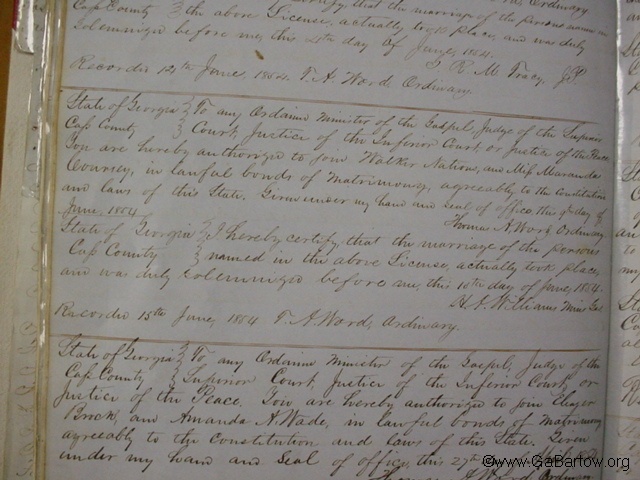 Cass County } the above License, actually took place, and was duly
solemnized before me, this 4th day of June, 1854.
T. R. M. Tracy J.P.
Recorded 12th June, 1854. T. A. Word, Ordinary.
State of Georgia } To any Ordained Minister of the Gospel, Judge of the Superior
Cass County } Court, Justice of the Inferior Court, or Justice of the Peace
You are hereby authorized to join Walker Nations, and Miss Maranda
Coursey, in lawful bonds of matrimony, agreeably to the Constitution
and laws of this State. Given under my hand and Seal of office, this 9th day of
June, 1854. Thomas A. Word, Ordinary
State of Georgia } I hereby certify, that the marriage of the persons
Cass County } named in the above License, actually took place,
and was duly solemnized before me, this 10th day of June, 1854.
A. S. Williams Minis Gos.
Recorded 15th June, 1854 T. A. Word, Ordinary.
State of Georgia } To any Ordained Minister of the Gospel, Judge of the
Cass County } Superior Court, Justice of the Inferior Court, or
Justice of the Peace. You are hereby authorized to join
Brock, and Amanda A. Wade, in lawful bonds of matrimony
agreeably to the Constitution and laws of this State. Given
under my hand and Seal of office, this 27th
©www.GaBartow.org